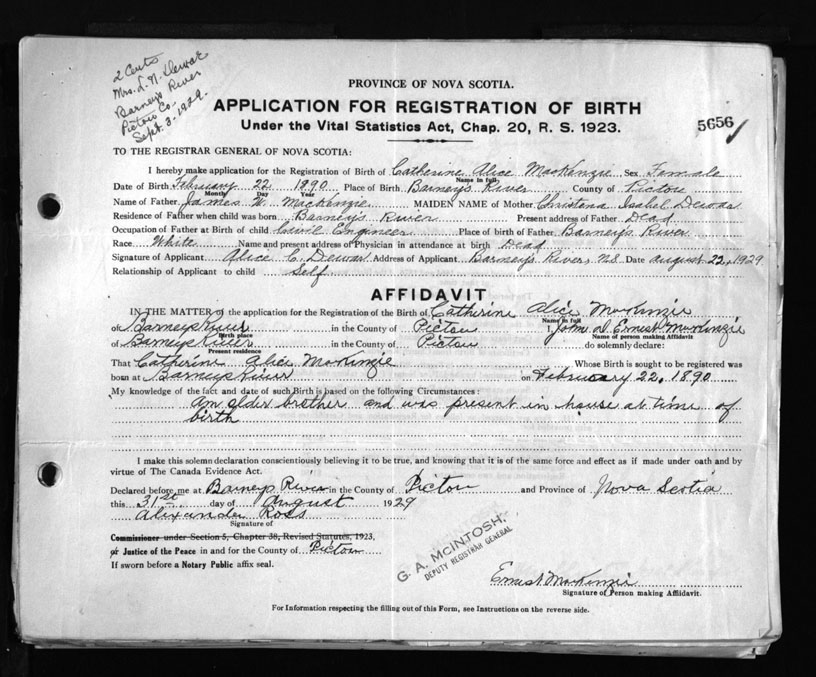 2 Cents
Mrs. L. N. Dewar
Barney's River
Pictou Co.
Sept. 3-1929.
PROVINCE OF NOVA SCOTIA.
APPLICATION FOR REGISTRATION OF BIRTH
5656
Under the Vital Statistics Act, Chap. 20, R. S. 1923.
TO THE REGISTRAR GENERAL OF NOVA SCOTIA:
I hereby make application for the Registration of Birth of Catherine Alice MacKenzie Sex Female
Name in full
Date of Birth February 22 1890 Place of Birth Barney's River County of Pictou
Month Day Year
Name of Father James W. MacKenzie MAIDEN NAME of Mother Christena Isabel
Residence of Father when child was born Barney's River Present address of Father Dead
Occupation of Father at Birth of Child Civil Engineer Place of birth of Father Barney's River
Race White Name and present address of Physician in attendance at birth Dead
Signature of Applicant Alice C. Dewar Address of Applicant Barney's River, N.S. Date August 22, 1929
Relationship of Applicant to child Self
AFFIDAVIT
IN THE MATTER of the application for the Registration of the Birth of Catherine Alice MacKenzie
Name in full
of Barneys River in the County of Pictou John D Ernest MacKenzie
Birth place
Name of person making Affidavit
of Barneys River in the County of Pictou do solemnly declare:
Present residence
That Catherine Alice MacKenzie Whose Birth is sought to be registered was
born at Barneys River on February 22, 1890
My knowledge of the fact and date of such Birth is based on the following Circumstances:
An older brother and was present in house at time of
birth
I make this solemn declaration conscientiously believing it to be true, and knowing that it is of the same force and effect as if made under oath and by
virtue of The Canada Evidence Act.
Declared before me at Barneys River in the County of Pictou and Province of Nova Scotia
this 31st day of August 1929
Alexander Ross
Signature of
Commissioner under Section 5, Chapter 38, Revised Statutes, 1923,
or Justice of the Peace in and for the County of Pictou
If sworn before a Notary Public affix seal.
G. A. McINTOSH,
DEPUTY REGISTRAR GENERAL
Ernest MacKenzie
Signature of Person making Affidavit.
For Information respecting the filling out of this Form, see Instructions on the reverse side.